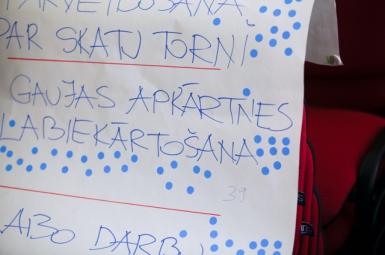 PĀRVEIDOŠANA
PAR SKATU TORNĪ
GAUJAS APKĀRTNES
LABIEKĀRTOŠANA
39
DARB